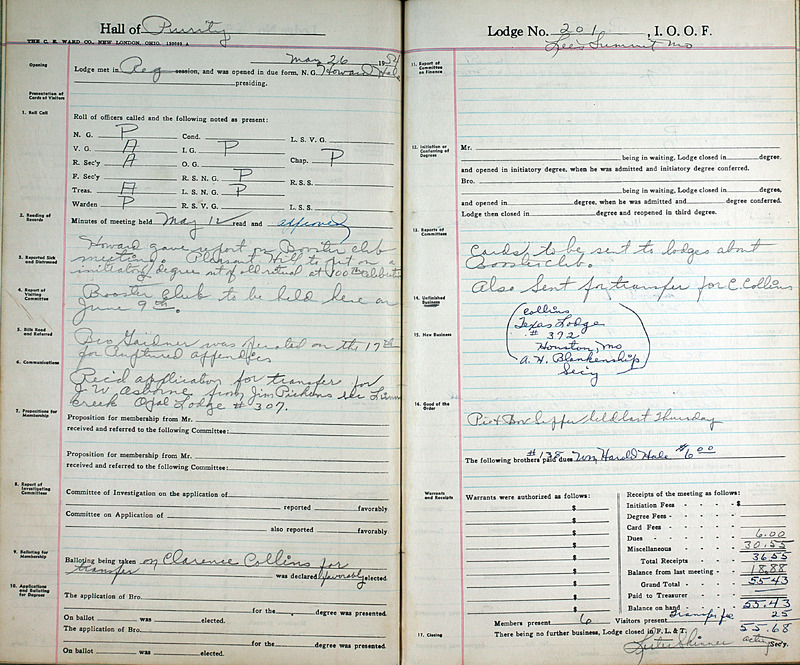 Hall of Purity
THE C. E. WARD CO., NEW LONDON, OHIO.
May 26 19
Opening
Lodge met in Reg session, and was opened in due form, N. G. Howard Hale
presiding.
Presentation of
Cards of Visitors
1. Roll Call
Roll of officers called and the following noted as present:
N. G. P Cond. L. S. V. G.
V. G. A I. G. P Chap. P
R. Sec'y A O. G.
F. Sec'y R. S. N. G. P R. S. S.
Treas. A L. S. N. G. P
Warden P R. S. V. G. L. S. S.
2. Reading of
Records
Minutes of meeting held May 12 read and approved
3. Reported Sick
and Distressed
Howard gave report on Booster club
meeting. Pleasant Hill to put on a
initiatory degree at 100th
4. Report of
Visiting
Committee
Booster Club to be held here on
June 9th.
5. Bills Read
and Referred
Bro Gaidner was operated on the 17th
for Ruptured appendices
6. Communications
Rec'd application for transfer for
J. W. Osborne from Jim Pickens sec
creek Opal Lodge # 307.
7. Propositions for
Membership
Proposition for membership from Mr.
received and referred to the following Committee:
Proposition for membership from Mr.
received and referred to the following Committee:
8. Report of
Investigating
Committees
Committee of Investigation on the application of
reported favorably
Committee on Application of
also reported favorably
9. Balloting for
Membership
Balloting being taken on Clarence Collins for
transfer was declared favorably elected.
10. Applications
and Balloting
for Degrees
The application of Bro.
for the degree was presented.
On ballot was elected.
The application of Bro.
for the degree was presented.
On ballot was elected.
Lodge No. 201, I. O. O. F.
Lee's Summit Mo
11. Report of
Committee
on Finance
12. Initiation or
Conferring of
Degrees
Mr.
being in waiting, Lodge closed in degree,
and opened in initiatory degree, when he was admitted and initiatory degree conferred.
Bro.
being in waiting, Lodge closed in degree,
and opened in degree, when he was admitted and degree conferred.
Lodge then closed in degree and reopened in third degree.
13. Reports of
Committees
Cards to be sent to lodges about
Booster Club.
Also sent for transfer for C. Collins
14. Unfinished
Business
15. New Business
Collins
Texas Lodge
# 372
Houston, Mo
A. H. Blankenship
Sec'y
16. Good of the
Order
Pie & Box Supper held last Thursday
The following brothers paid dues #138 Wm Harold Hale $6.00
Warrants
and Receipts
Warrants were authorized as follows:
$
$
$
$
$
$
$
$
Receipts of the meeting as follows:
Initiation Fees $
Degree Fees
Card Fees
Dues 6.00
Miscellaneous 30.55
Total Receipts 36.55
Balance from last meeting 18.88
Grand Total 55.43
Paid to Treasurer
Balance on hand 55.43
Transfer fee 25
Members present 6 Visitors present
55.68
17. Closing
There being no further business, Lodge closed in F. L. & T.
Lester Skinner acting Sec'y.